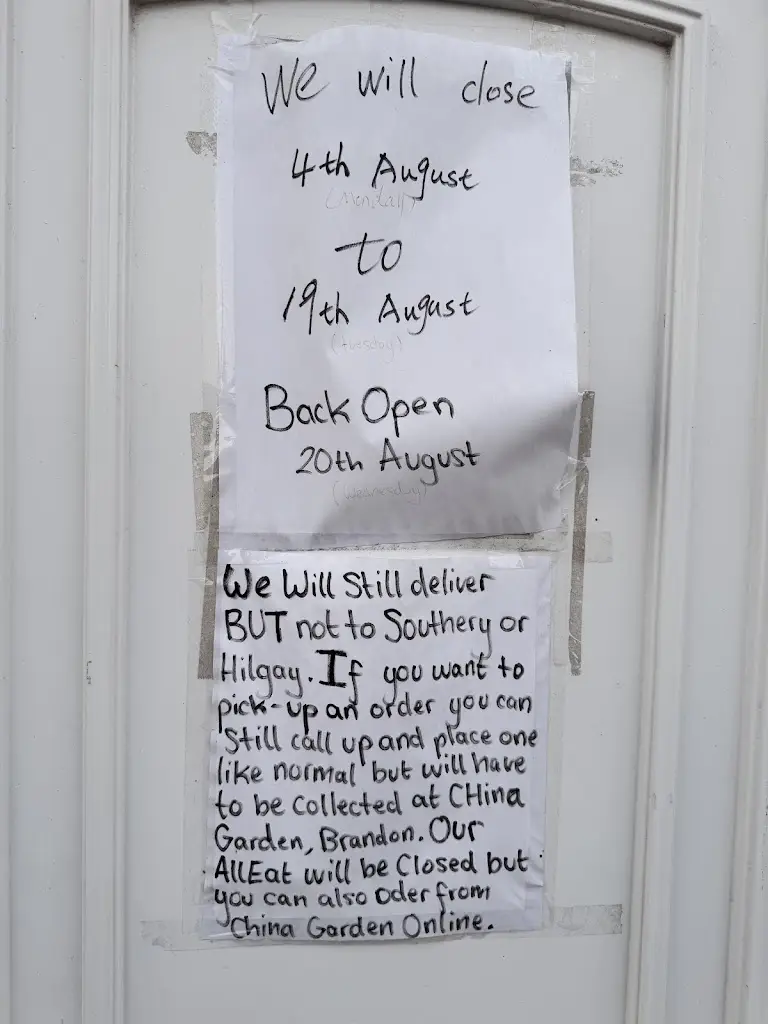 We will close
4th August
(Monday)
to
19th August
(tuesday)
Back Open
20th August
(Wednesday)
We Will Still deliver
BUT not to Southery or
Hilgay. If you want to
pick-up an order you can
Still call up and place one
like normal but will have
to be collected at CHina
Garden, Brandon. Our
AllEat will be Closed but
you can also oder from
China Garden Online.